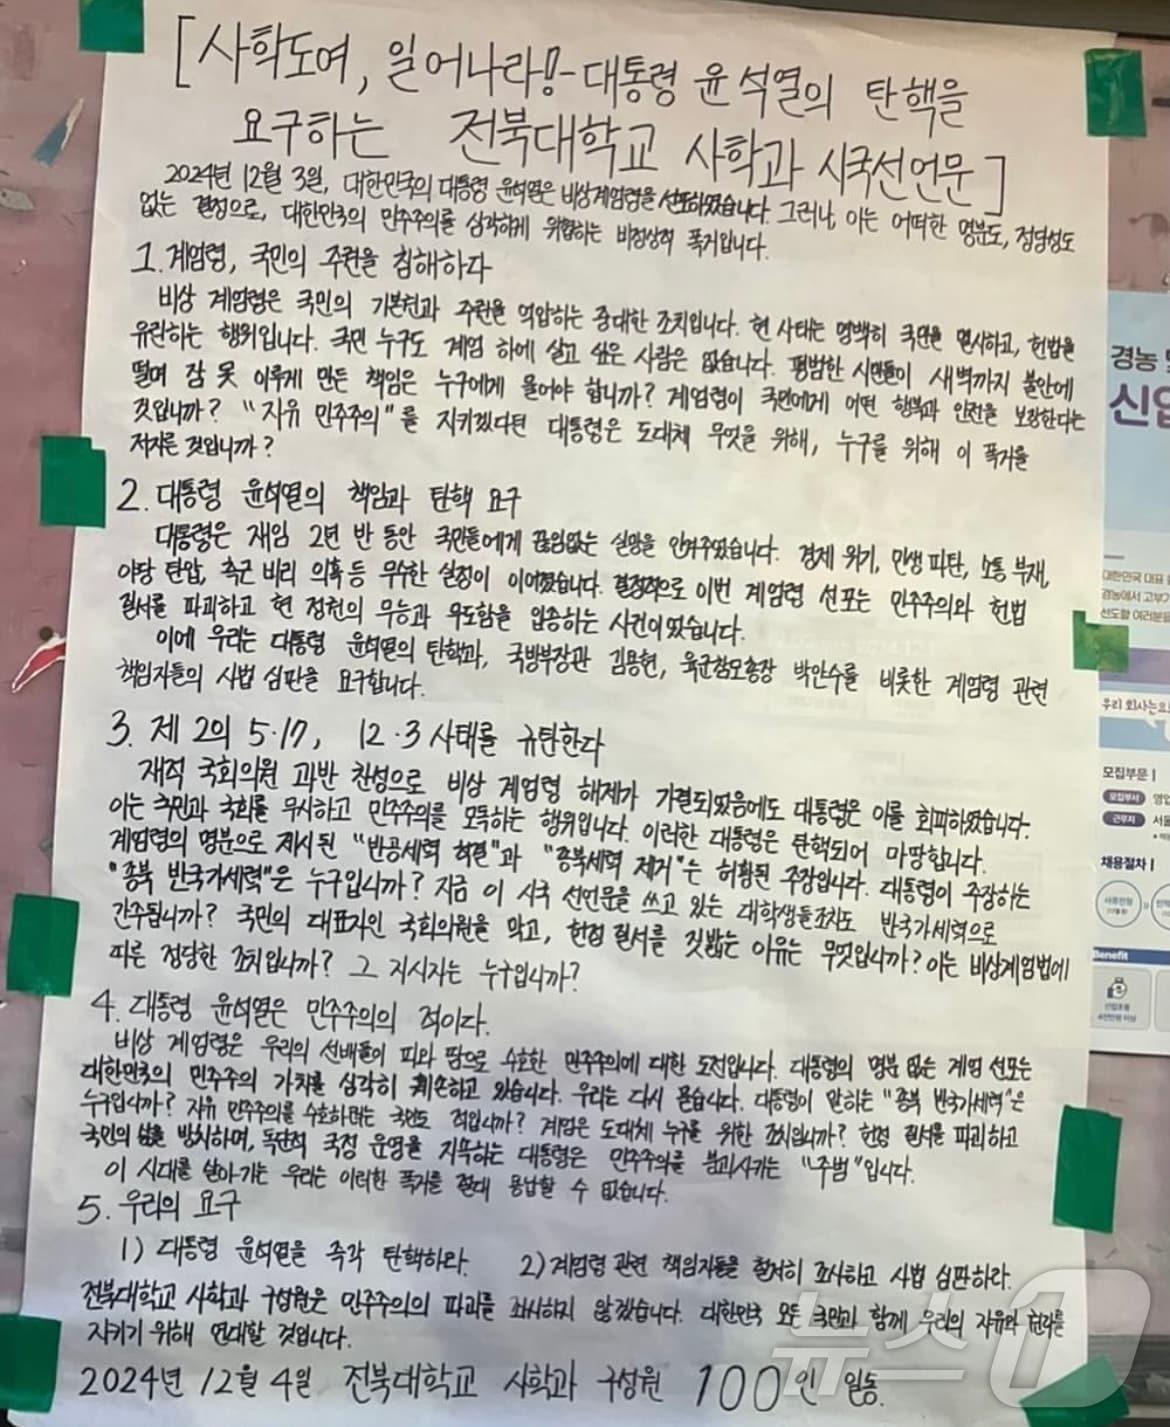 [사학도여, 일어나라!- 대통령 윤석열의 탄핵을
요구하는 전북대학교 사학과 시국선언문]
2024년 12월 3일, 대한민국의 대통령 윤석열은 비상계엄령을 선포하였습니다. 그러나, 이는 어떠한 명분도, 정당성도
없는 결정으로, 대한민국의 민주주의를 심각하게 위협하는 비정상적 폭거입니다.
1. 계엄령, 국민의 주권을 침해하다
비상 계엄령은 국민의 기본권과 주권을 억압하는 중대한 조치입니다. 현 사태는 명백히 국민을 멸시하고, 헌법을
유린하는 행위입니다. 국민 누구도 계엄 하에 살고 싶은 사람은 없습니다. 평범한 시민들이 새벽까지 불안에
떨며 잠 못 이루게 만든 책임은 누구에게 물어야 합니까? 계엄령이 국민에게 어떤 행복과 안전을 보장한다는
것입니까? "자유 민주주의"를 지키겠다던 대통령은 도대체 무엇을 위해, 누구를 위해 이 폭거를
저지른 것입니까?
2. 대통령 윤석열의 책임과 탄핵 요구
대통령은 재임 2년 반 동안 국민들에게 끊임없는 실망을 안겨주었습니다. 경제 위기, 민생 파탄, 소통 부재,
야당 탄압, 측근 비리 의혹 등 무수한 실정이 이어졌습니다. 결정적으로 이번 계엄령 선포는 민주주의와 헌법
질서를 파괴하고 현 정권의 무능과 무도함을 입증하는 사건이었습니다.
이에 우리는 대통령 윤석열의 탄핵과, 국방부장관 김용현, 육군참모총장 박안수를 비롯한 계엄령 관련
책임자들의 사법 심판을 요구합니다.
3. 제 2의 5·17, 12·3 사태를 규탄한다
재적 국회의원 과반 찬성으로 비상 계엄령 해제가 가결되었음에도 대통령은 이를 회피하였습니다.
이는 국민과 국회를 무시하고 민주주의를 모독하는 행위입니다. 이러한 대통령은 탄핵되어 마땅합니다.
계엄령의 명분으로 제시된 "반공세력 척결"과 "종북세력 제거"는 허황된 주장입니다. 대통령이 주장하는
"종북 반국가세력"은 누구입니까? 지금 이 시국 선언문을 쓰고 있는 대학생들조차도 반국가세력으로
간주됩니까? 국민의 대표자인 국회의원을 막고, 헌정 질서를 짓밟는 이유는 무엇입니까? 이는 비상계엄법에
따른 정당한 조치입니까? 그 지시자는 누구입니까?
4. 대통령 윤석열은 민주주의의 적이다.
비상 계엄령은 우리의 선배들이 피와 땀으로 수호한 민주주의에 대한 도전입니다. 대통령의 명분 없는 계엄 선포는
대한민국의 민주주의 가치를 심각히 훼손하고 있습니다. 우리는 다시 묻습니다. 대통령이 말하는 "종북 반국가세력"은
누구입니까? 자유 민주주의를 수호하려는 국민도 적입니까? 계엄은 도대체 누구를 위한 조치입니까? 헌정 질서를 파괴하고
국민의 삶을 방치하며, 독단적 국정 운영을 지속하는 대통령은 민주주의를 붕괴시키는 "주범"입니다.
이 시대를 살아가는 우리는 이러한 폭거를 절대 용납할 수 없습니다.
5. 우리의 요구
1) 대통령 윤석열을 즉각 탄핵하라. 2) 계엄령 관련 책임자들을 철저히 조사하고 사법 심판하라.
전북대학교 사학과 구성원은 민주주의의 파괴를 좌시하지 않겠습니다. 대한민국 모든 국민과 함께 우리의 자유와 권리를
지키기 위해 연대할 것입니다.
2024년 12월 4일 전북대학교 사학과 구성원 100인 일동.
경농
신입
대한민국 대표
경농에서 고부가
선도할 여러분을
우리 회사는
모집부문
모집부서 영업
근무지 서울
채용절차
서류전형
Benefit
뉴스1